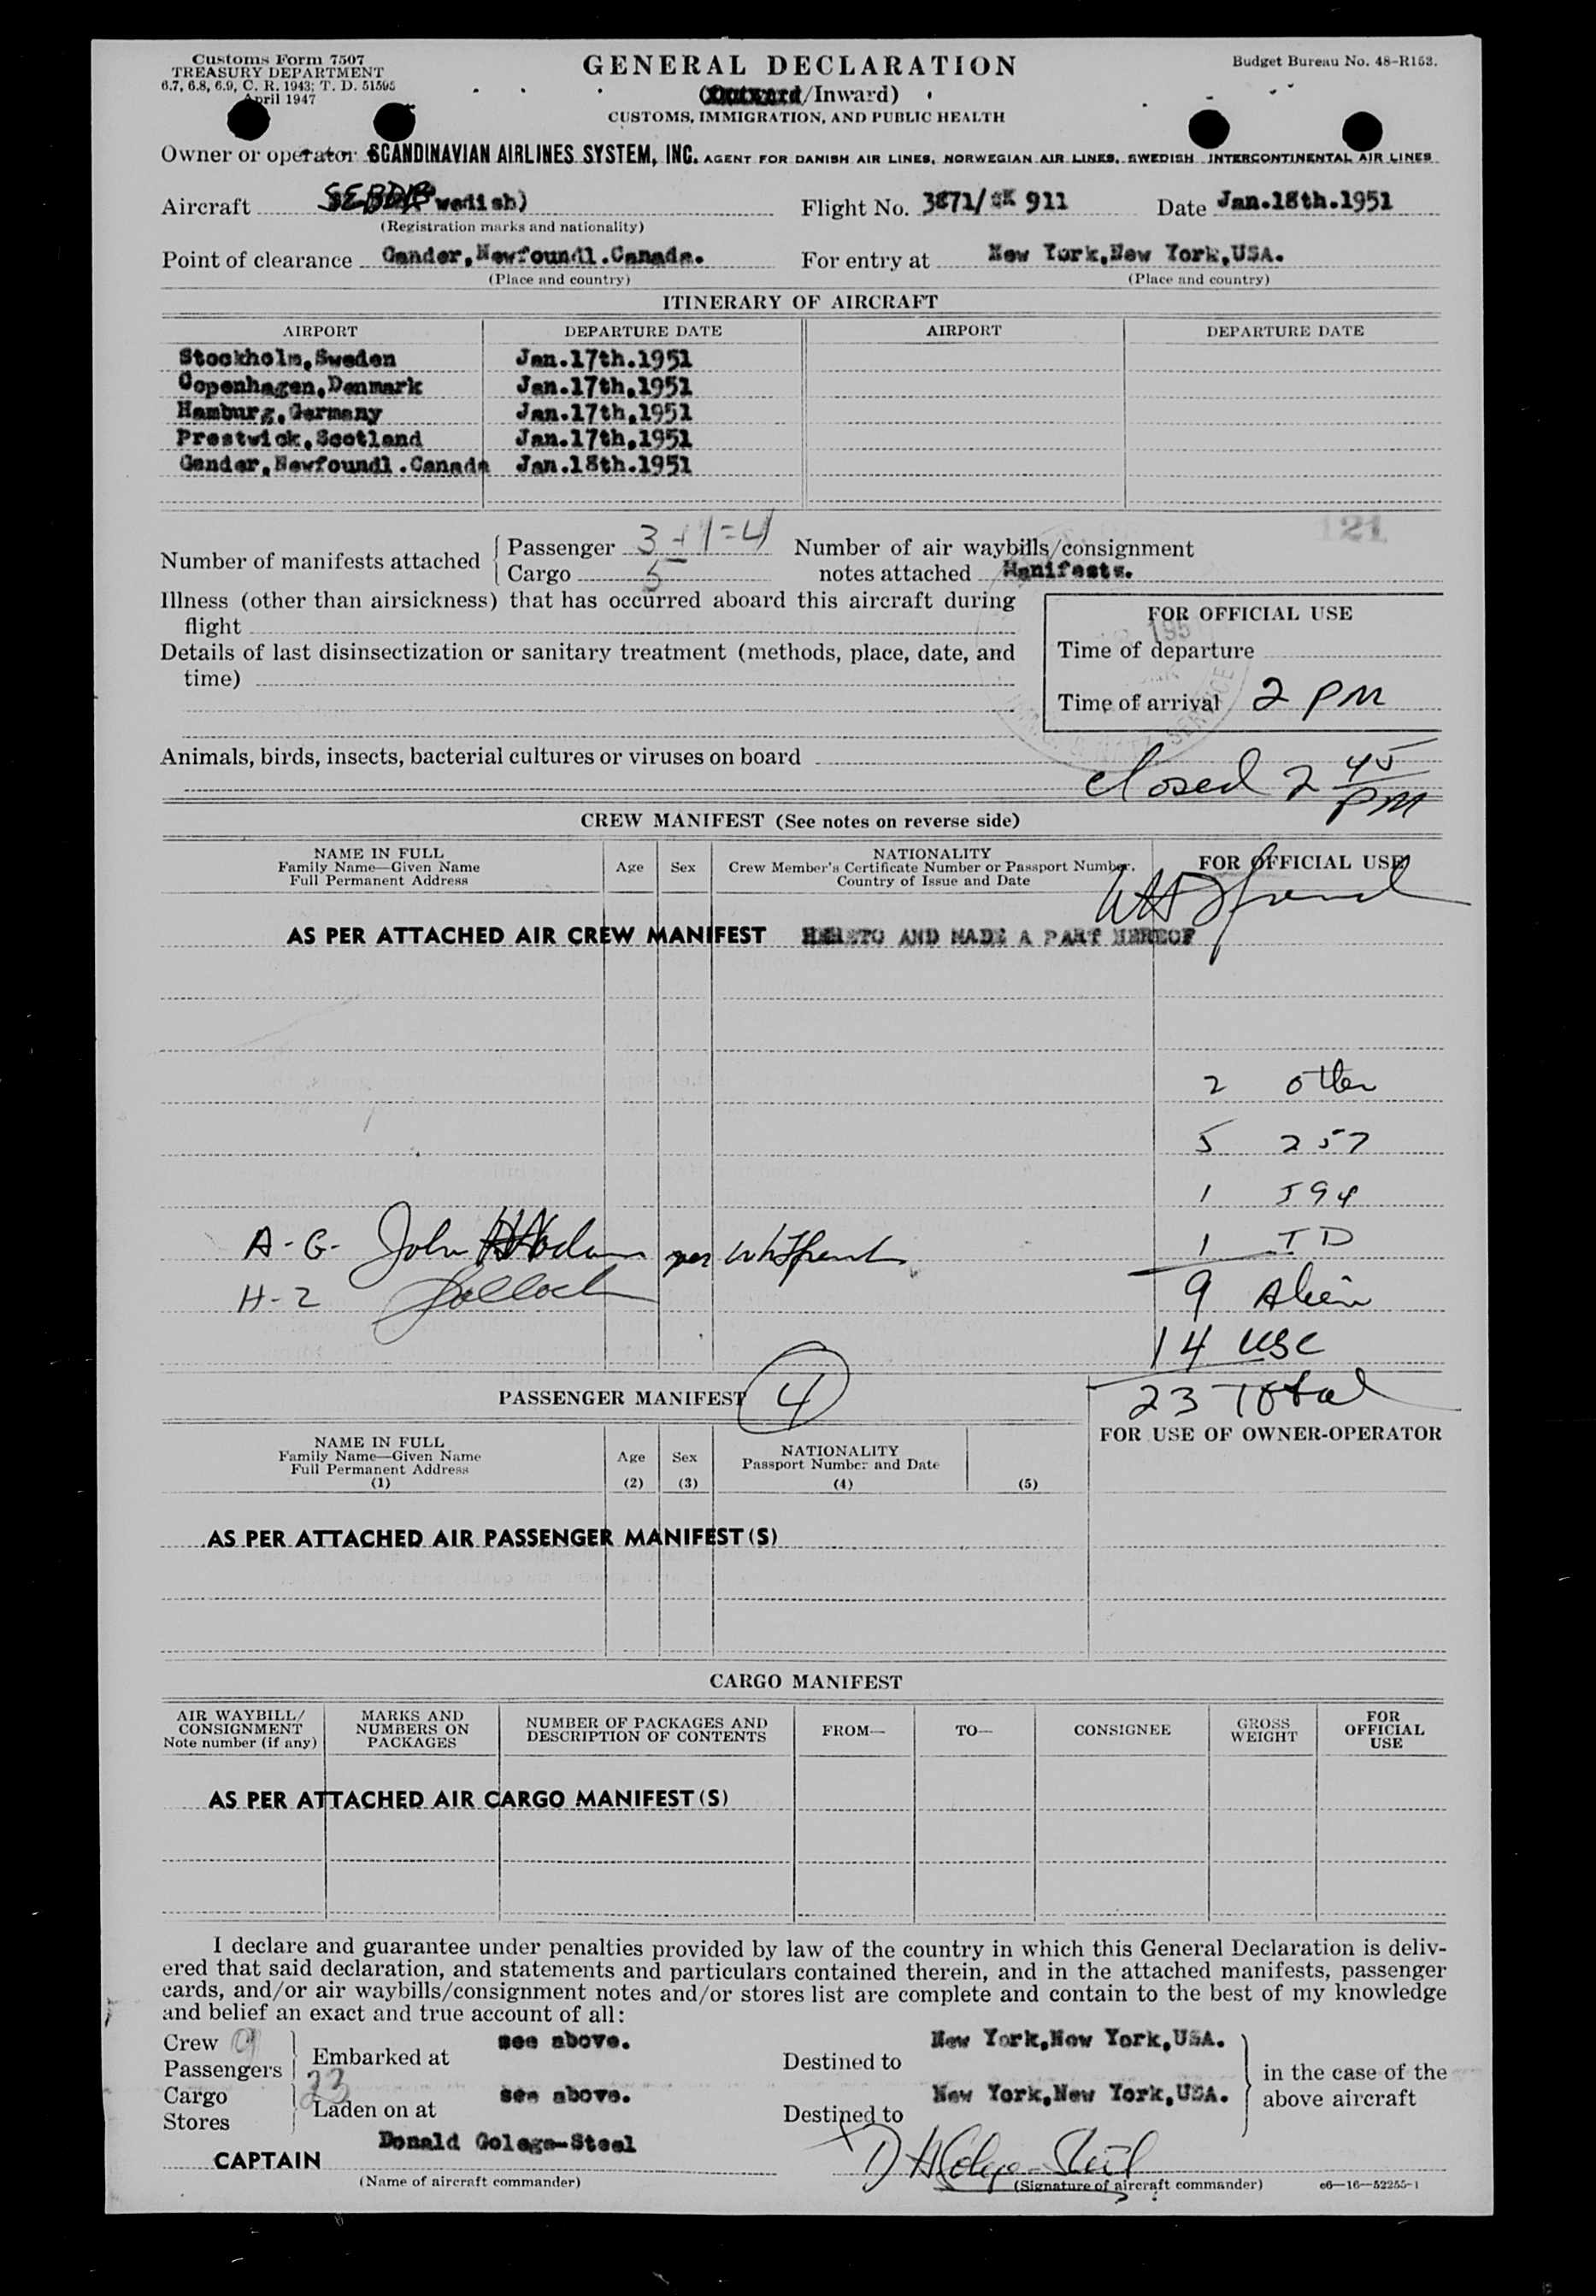 Customs Form 7507
TREASURY DEPARTMENT
6.7, 6.8, 6.9, C. R. 1943; T. D. 51595
April 1947
GENERAL DECLARATION
(Outward/Inward)
CUSTOMS, IMMIGRATION, AND PUBLIC HEALTH
Budget Bureau No. 48-R153.
Owner or operator SCANDINAVIAN AIRLINES SYSTEM, INC. AGENT FOR DANISH AIR LINES, NORWEGIAN AIR LINES, SWEDISH INTERCONTINENTAL AIR LINES
Aircraft SEBDB wedish) Flight No. 3871/SK 911 Date Jan.18th.1951
(Registration marks and nationality)
Point of clearance Gander,Newfoundl.Canada. For entry at New York,New York,USA.
(Place and country) (Place and country)
ITINERARY OF AIRCRAFT
AIRPORT DEPARTURE DATE AIRPORT DEPARTURE DATE
Stockholm,Sweden Jan.17th.1951
Copenhagen,Denmark Jan.17th.1951
Hamburg,Germany Jan.17th.1951
Prestwick,Scotland Jan.17th.1951
Gander,Newfoundl.Canada Jan.18th.1951
121
Number of manifests attached { Passenger 3+1=4
Cargo 5
Number of air waybills/consignment
notes attached Manifests.
Illness (other than airsickness) that has occurred aboard this aircraft during
flight
Details of last disinsectization or sanitary treatment (methods, place, date, and
time)
FOR OFFICIAL USE
Time of departure
Time of arrival 2 PM
Animals, birds, insects, bacterial cultures or viruses on board
closed 2 45 PM
CREW MANIFEST (See notes on reverse side)
NAME IN FULL
Family Name—Given Name
Full Permanent Address
Age Sex
NATIONALITY
Crew Member's Certificate Number or Passport Number.
Country of Issue and Date
FOR OFFICIAL USE
AS PER ATTACHED AIR CREW MANIFEST HERETO AND MADE A PART HEREOF
2 other
5 257
1 I94
A-G- John per 1 TD
H-2 9 Alien
14 USC
23 Total
PASSENGER MANIFEST 4
FOR USE OF OWNER-OPERATOR
NAME IN FULL
Family Name—Given Name
Full Permanent Address
(1)
Age
(2)
Sex
(3)
NATIONALITY
Passport Number and Date
(4) (5)
AS PER ATTACHED AIR PASSENGER MANIFEST(S)
CARGO MANIFEST
AIR WAYBILL/
CONSIGNMENT
Note number (if any)
MARKS AND
NUMBERS ON
PACKAGES
NUMBER OF PACKAGES AND
DESCRIPTION OF CONTENTS
FROM—
TO—
CONSIGNEE
GROSS
WEIGHT
FOR
OFFICIAL
USE
AS PER ATTACHED AIR CARGO MANIFEST(S)
I declare and guarantee under penalties provided by law of the country in which this General Declaration is deliv-
ered that said declaration, and statements and particulars contained therein, and in the attached manifests, passenger
cards, and/or air waybills/consignment notes and/or stores list are complete and contain to the best of my knowledge
and belief an exact and true account of all:
Crew 9
Passengers 23
Embarked at see above. Destined to New York,New York,USA.
Cargo
Stores
Laden on at see above. Destined to New York,New York,USA.
in the case of the
above aircraft
CAPTAIN Donald Golege-Steel
(Name of aircraft commander) (Signature of aircraft commander) c6—16—52255-1